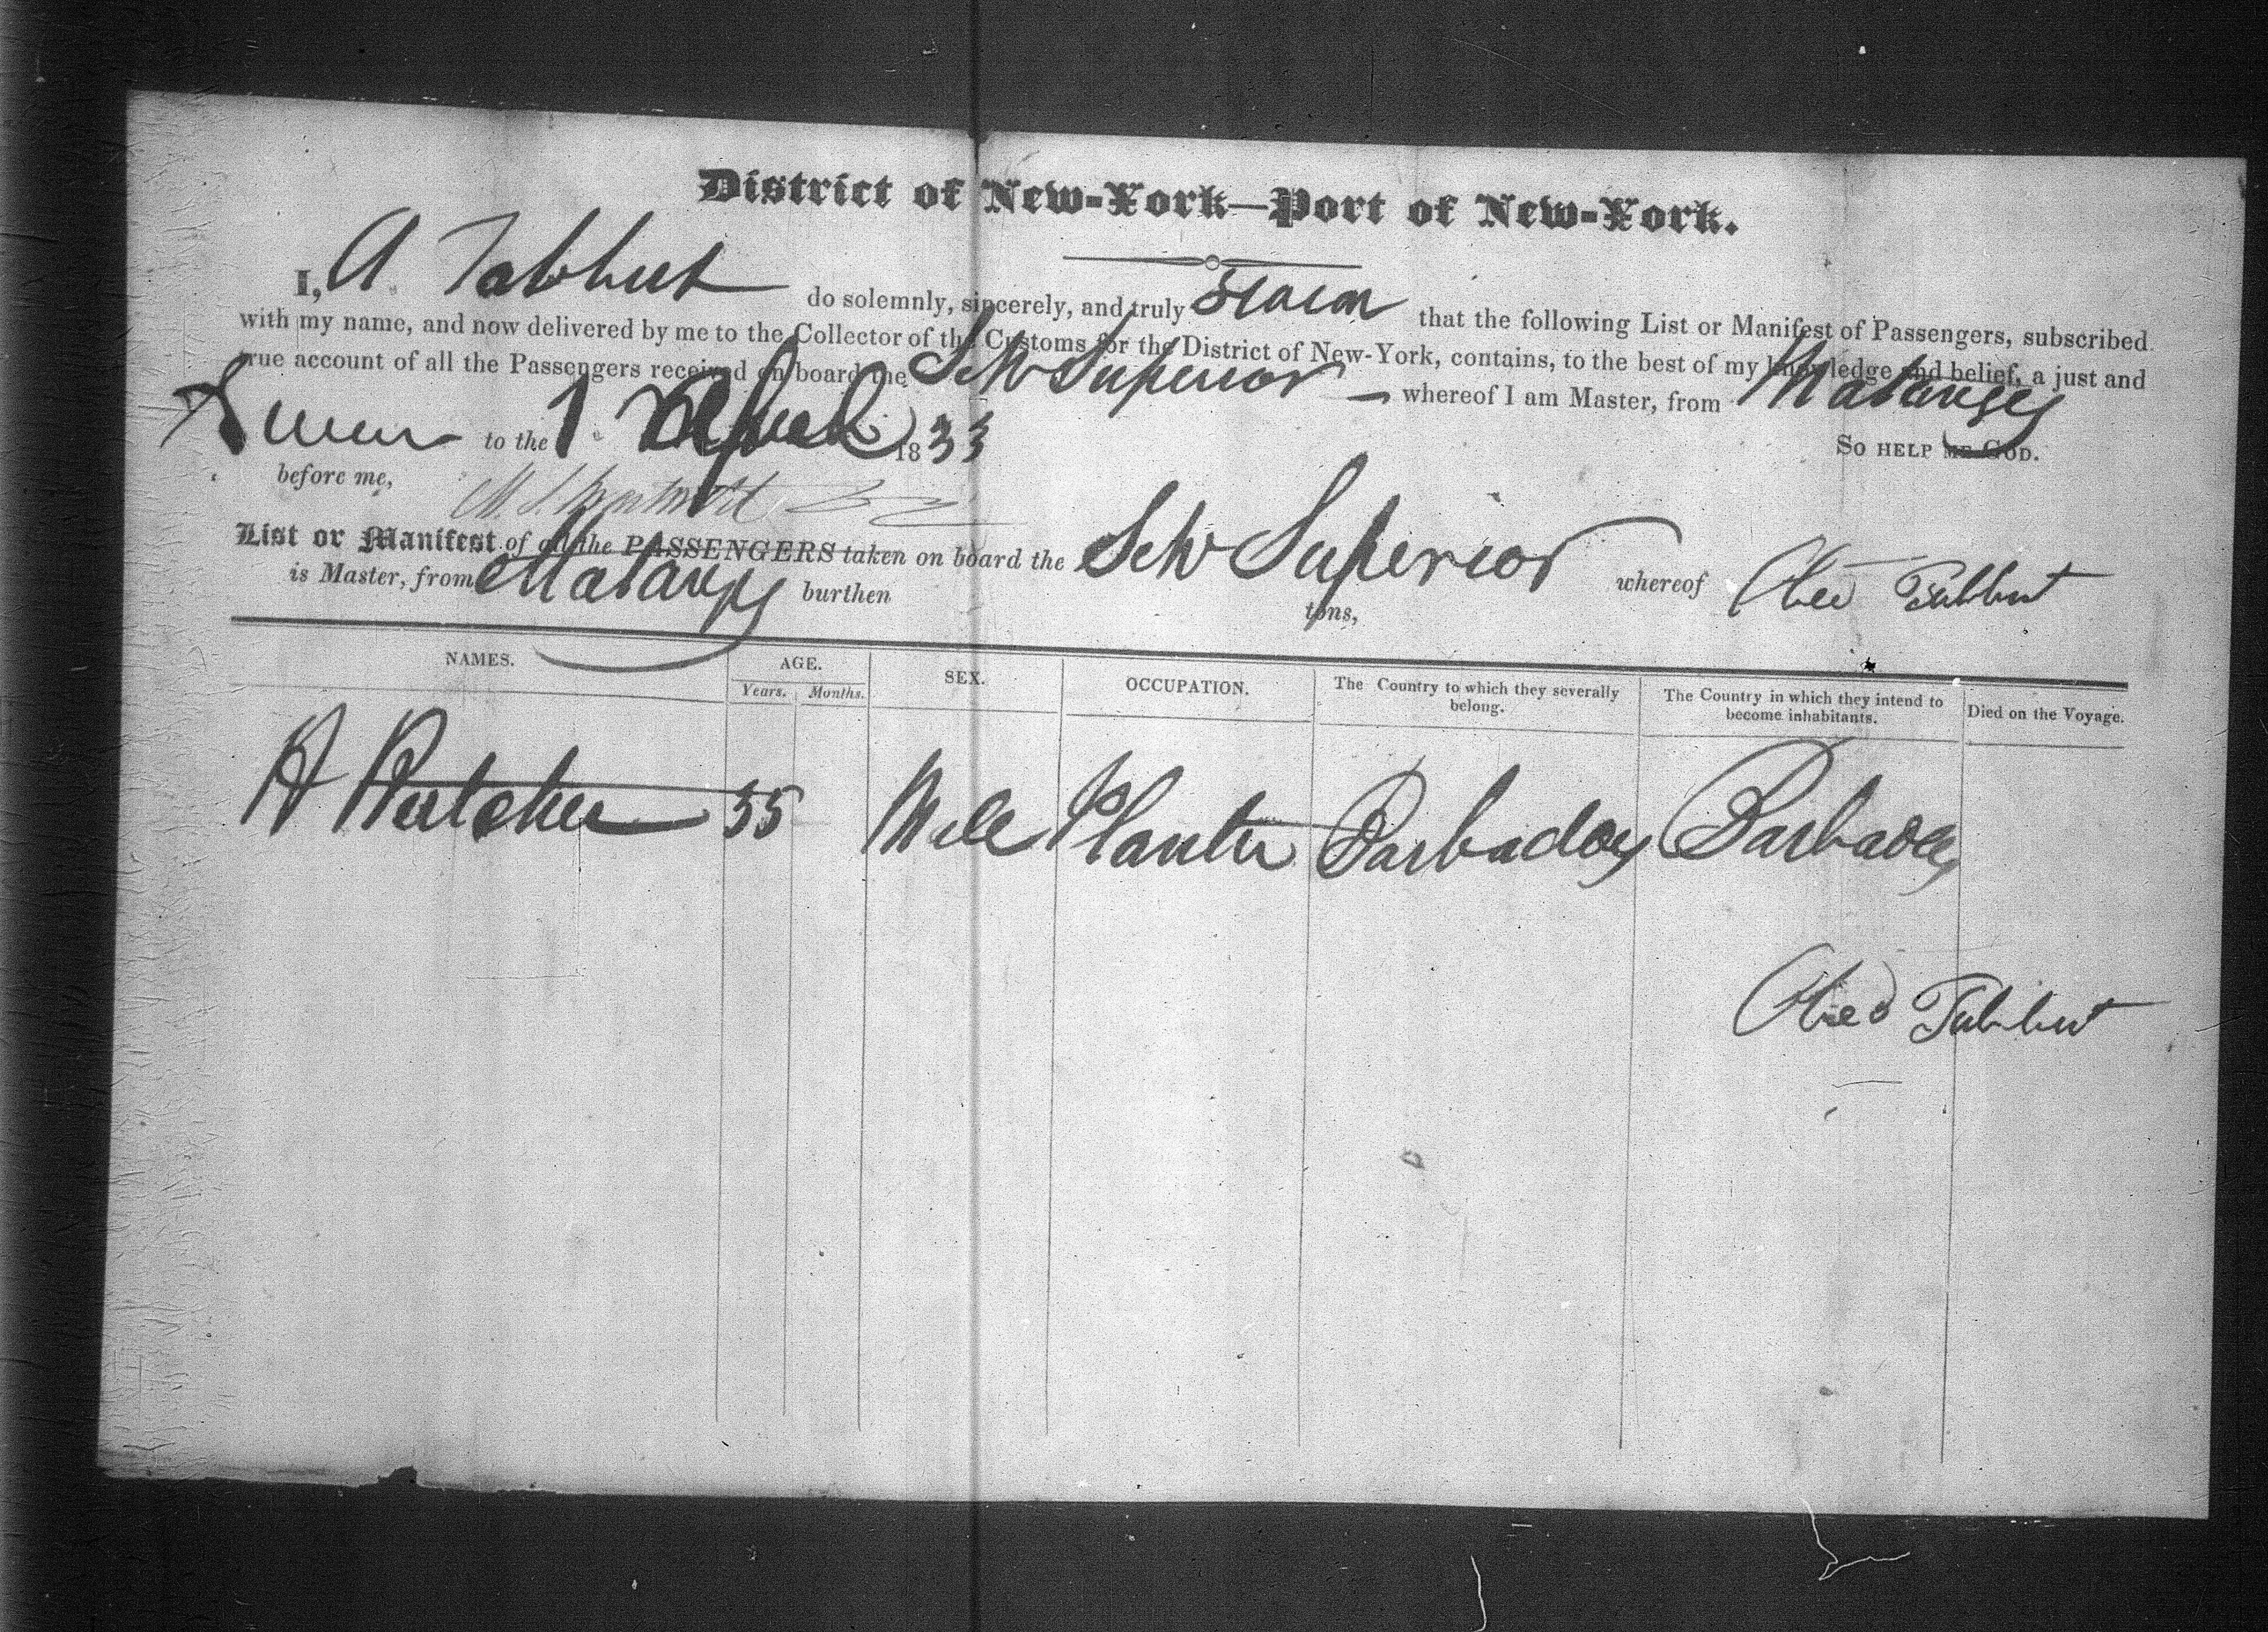 District of New-York—Port of New-York.
I, A Tabbut do solemnly, sincerely, and truly swear that the following List or Manifest of Passengers, subscribed
with my name, and now delivered by me to the Collector of the Customs for the District of New-York, contains, to the best of my knowledge and belief, a just and
true account of all the Passengers received on board the Schr Superior whereof I am Master, from Matanzas
Sworn to the 1 April 1833 So HELP ME GOD.
before me,
List or Manifest of all the PASSENGERS taken on board the Schr Superior whereof Obed Tabbut
is Master, from Matanzas burthen tons,
NAMES. AGE. SEX. OCCUPATION. The Country to which they severally belong. The Country in which they intend to become inhabitants. Died on the Voyage.
Years. Months.
H 35 Male Planter Barbadoes Barbadoes
Obed Tabbut